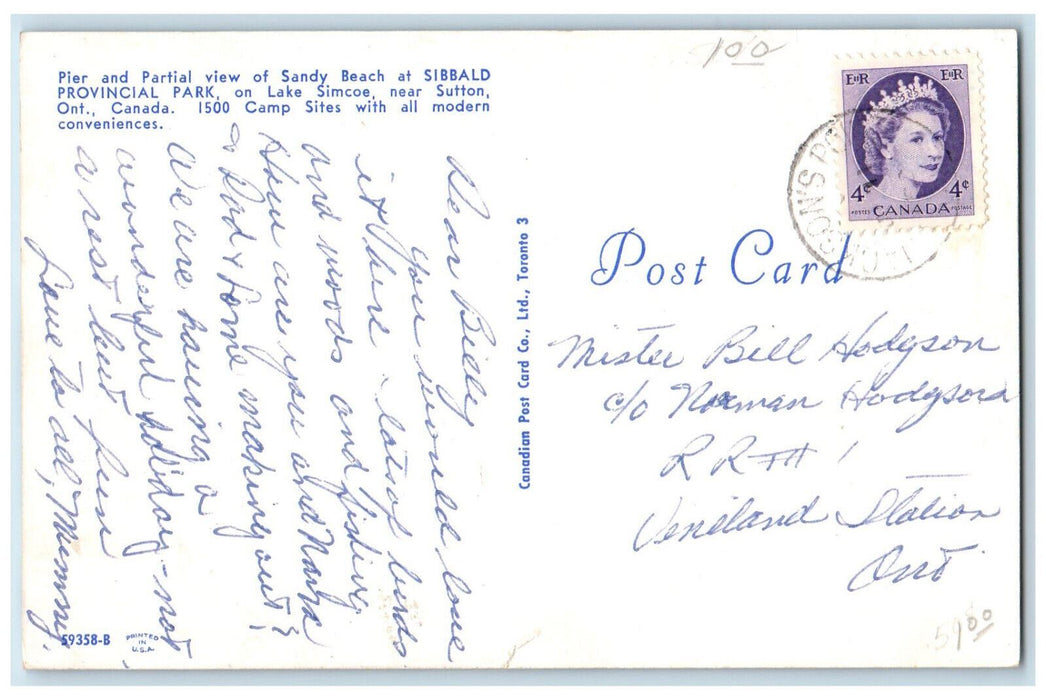 100
Pier and Partial view of Sandy Beach at SIBBALD
PROVINCIAL PARK, on Lake Simcoe, near Sutton,
Ont., Canada. 1500 Camp Sites with all modern
conveniences.
Dear Billy
you would love
it here - lots of birds
and woods and fishing
How are you and Nana
& Dad & Tome making out?
We are having a
wonderful holiday - not
a rest but fun
Love to all, Mummy.
59358-B
PRINTED
IN
U.S.A.
Canadian Post Card Co., Ltd., Toronto 3
EIIR EIIR
4¢ 4¢
POSTES CANADA POSTAGE
JACKSON'S PO
Post Card
Mister Bill Hodgson
c/o Norman Hodgson
RR # 1
Vineland Station
Ont
5900